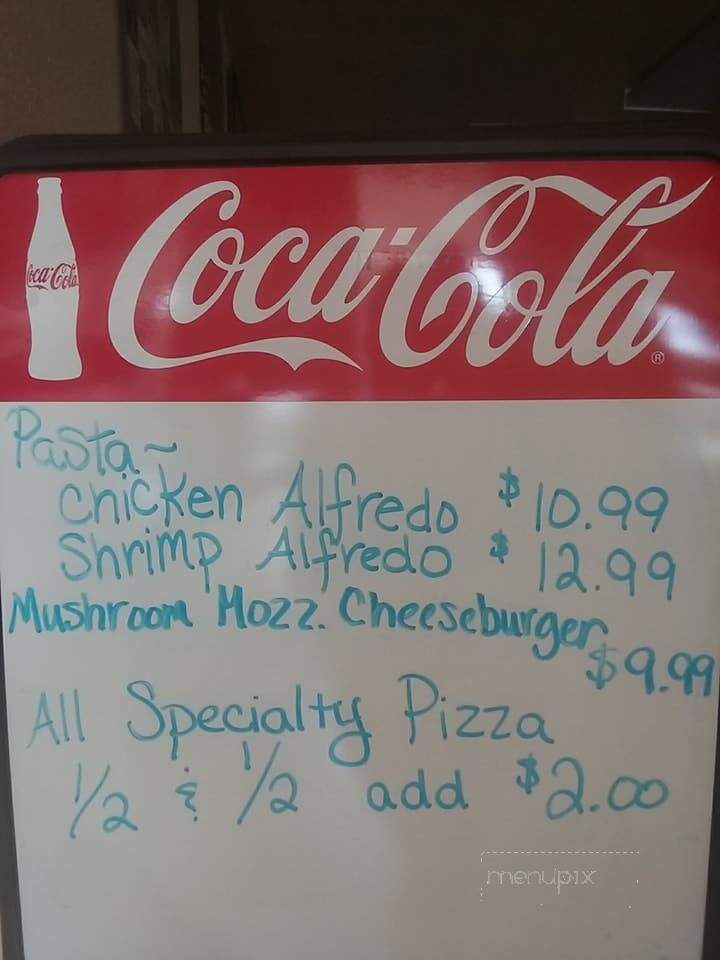 Coca-Cola
Coca-Cola ®
Pasta~
Chicken Alfredo $10.99
Shrimp Alfredo $12.99
Mushroom Mozz. Cheeseburger
$9.99
All Specialty Pizza
1/2 & 1/2 add $2.00
menupix